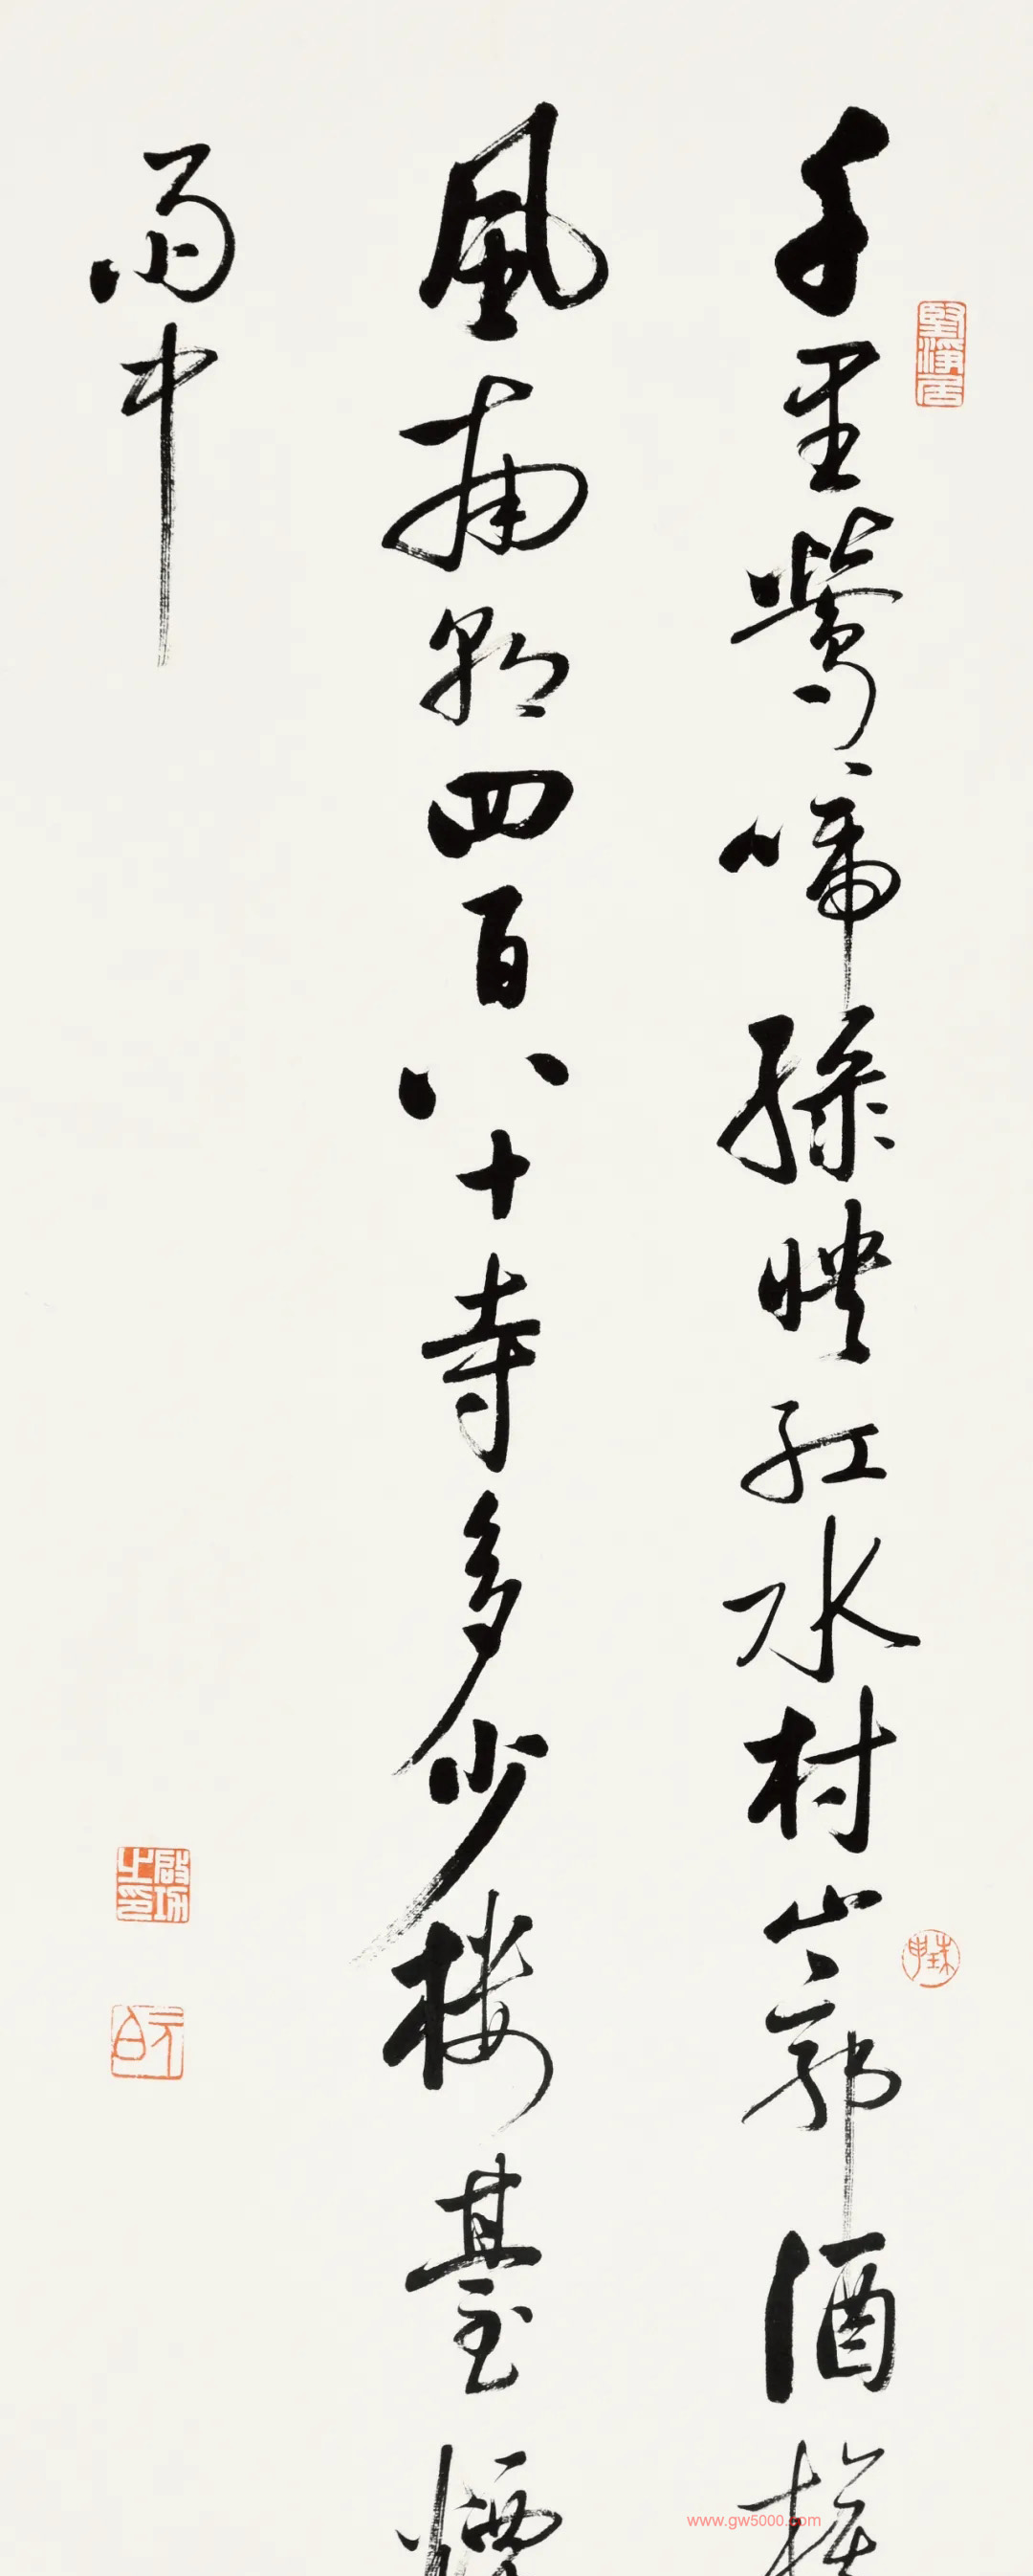 千里鶯啼綠映紅水村山郭酒旗
風南朝四百八十寺多少樓臺煙
雨中
啟功之印
元白
www.gw5000.com